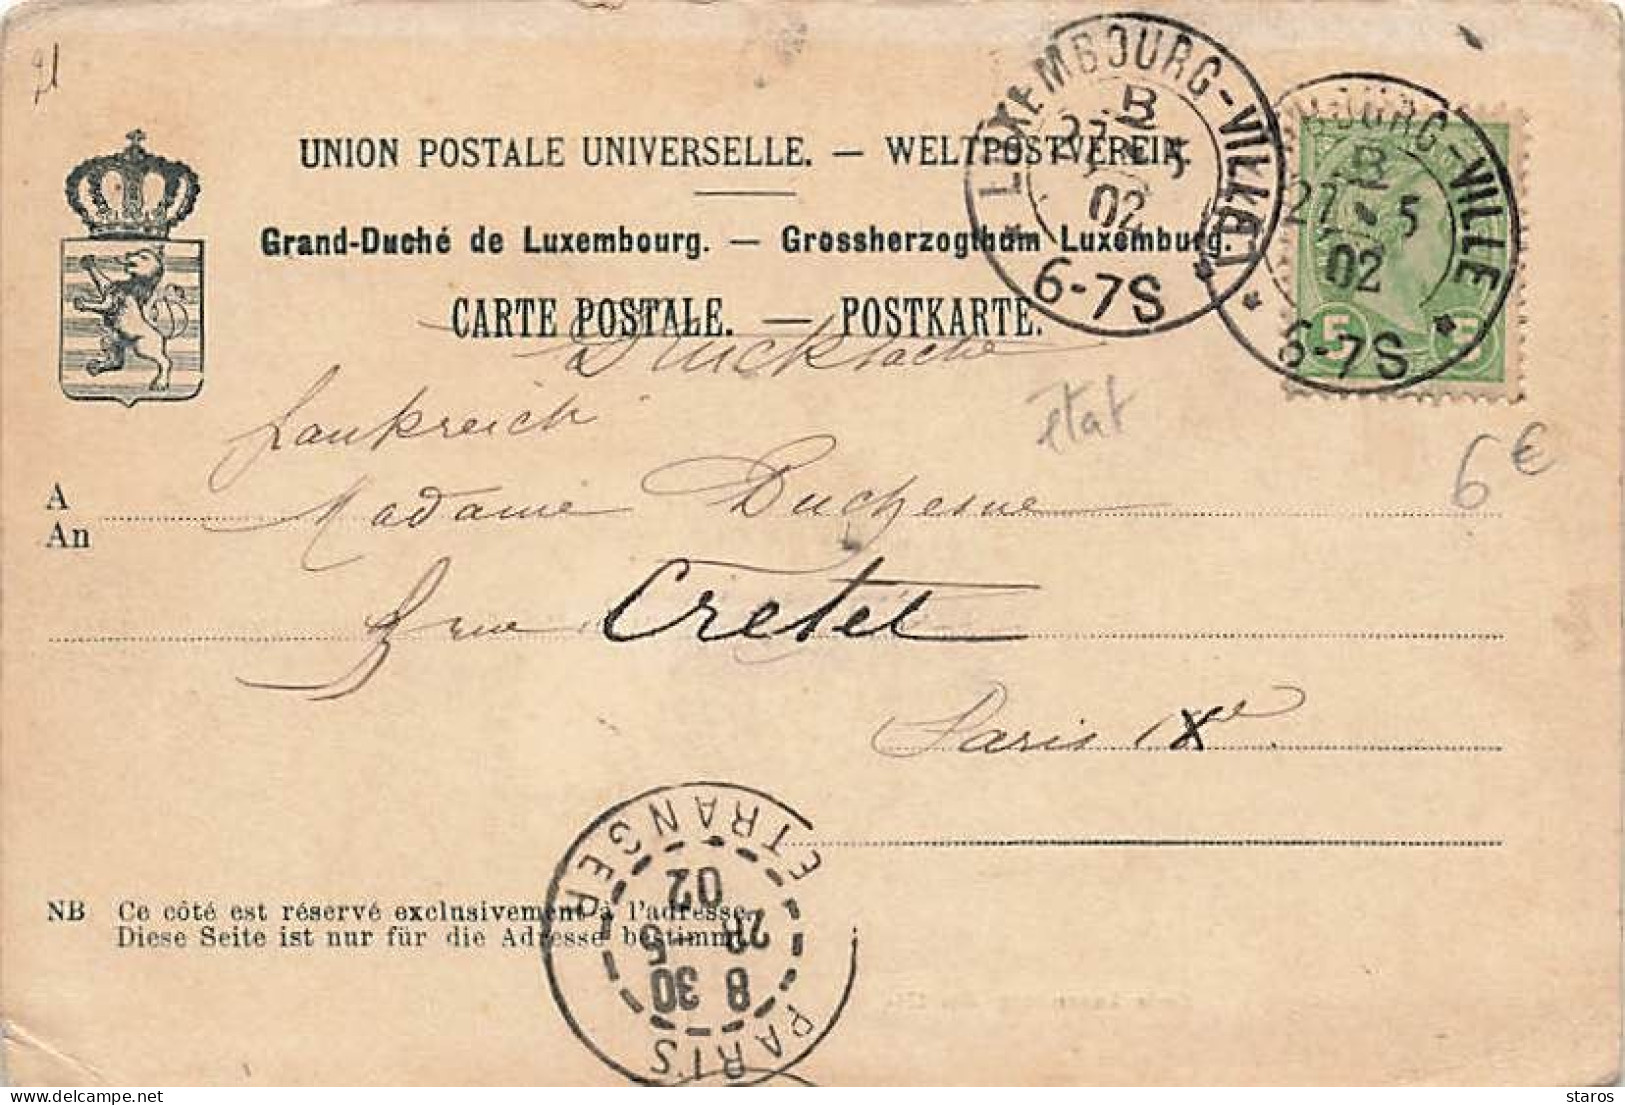 21
UNION POSTALE UNIVERSELLE. — WELTPOSTVEREIN.
Grand-Duché de Luxembourg. — Grossherzogthum Luxemburg.
CARTE POSTALE. — POSTKARTE.
LUXEMBOURG-VILLE
B
27 5
02
6-7S
BOURG-VILLE
B
27 5
02
6-7S
5 5
Drucksache
état
Frankreich
6€
A
An
Madame Duchesne
8 rue Cretet
Paris IXe
PARIS ETRANGER
8 30
28 5
02
NB Ce côté est réservé exclusivement à l'adresse.
Diese Seite ist nur für die Adresse bestimmt.
delcampe.net
staros